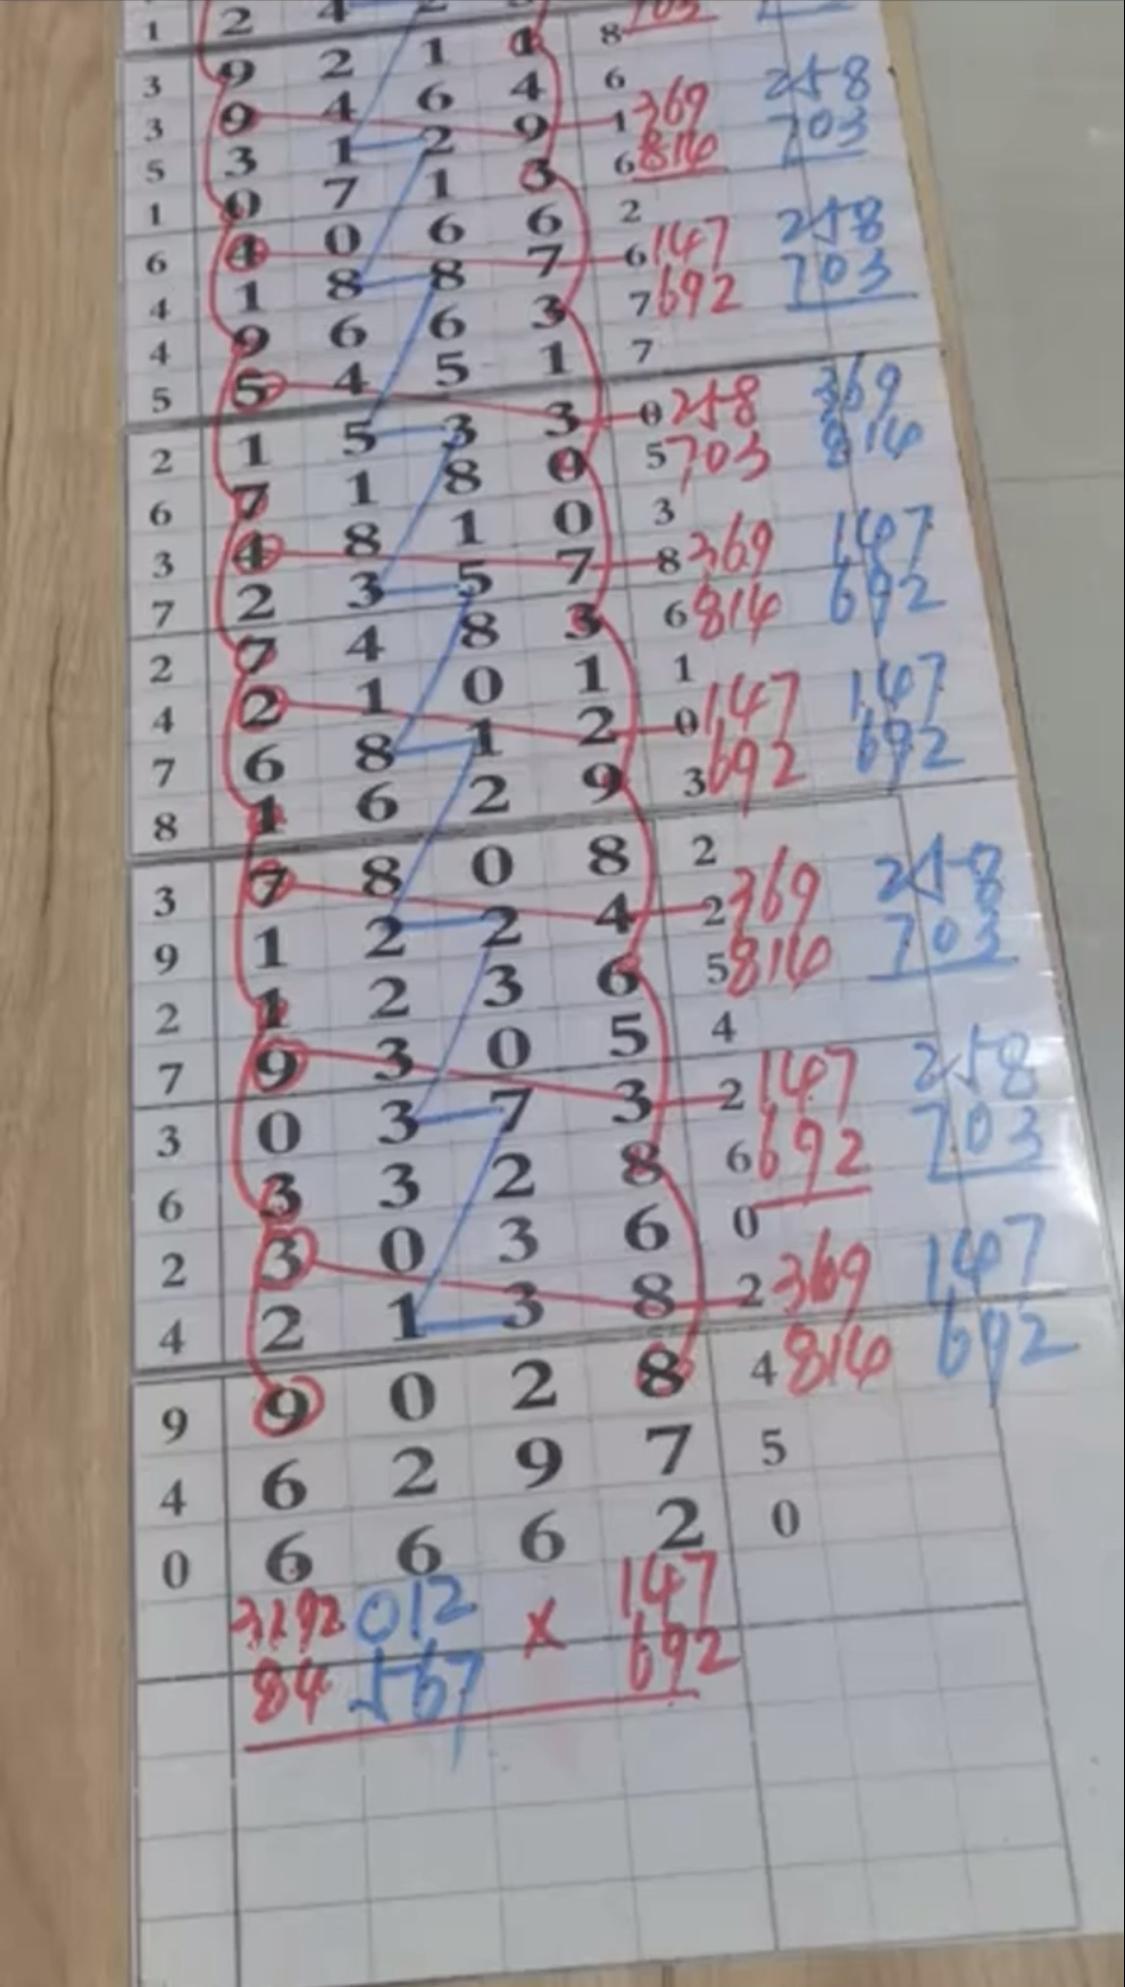 1 2 4 2
3 9 2 1 1 8
3 9 4 6 4 6 258
5 3 1 2 9 1 369 703
1 0 7 1 3 6 814
6 4 0 6 6 2 258
4 1 8 8 7 6 147 703
4 9 6 6 3 7 692
5 5 4 5 1 7
2 1 5 3 3 0 258 369
6 7 1 8 0 5 703 814
3 4 8 1 0 3 147
7 2 3 5 7 8 369 692
2 7 4 8 3 6 814
4 2 1 0 1 1 147
7 6 8 1 2 0 147 692
8 1 6 2 9 3 692
3 7 8 0 8 2 258
9 1 2 2 4 2 369 703
2 1 2 3 6 5 814
7 9 3 0 5 4 258
3 0 3 7 3 2 147 703
6 3 3 2 8 6 692
2 3 0 3 6 0 147
4 2 1 3 8 2 369 692
9 9 0 2 8 4 814
4 6 2 9 7 5
0 6 6 6 2 0
3192 012 × 147
84 567 692